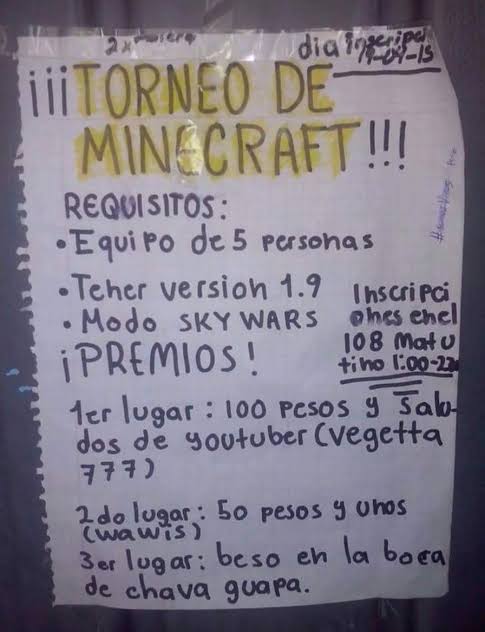 dia inscripci
19-04-15
¡¡¡TORNEO DE
MINECRAFT!!!
REQUISITOS:
• Equipo de 5 personas
• Tener version 1.9
• Modo SKY WARS
Inscripci
ones en el
108 Matu
tino 1:00-2:20
¡PREMIOS!
1er lugar: 100 pesos y Salu-
dos de youtuber (vegetta
777)
2do lugar: 50 pesos y unos
(wawis)
3er lugar: beso en la boca
de chava guapa.